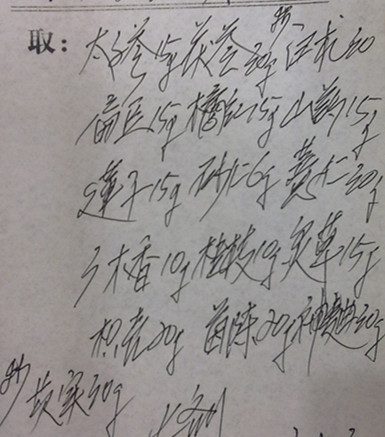 取：太子参15g 茯苓30g 炒白术30
扁豆15g 橘红15g 山药15g
莲子15g 砂仁6g 薏仁30g
广木香10g 桂枝10g 炙草15g
枳壳20g 茵陈20g 神曲30g
炒 芡实30g